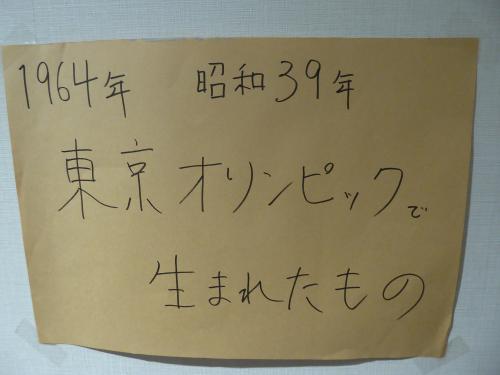 1964年 昭和39年
東京オリンピックで
生まれたもの